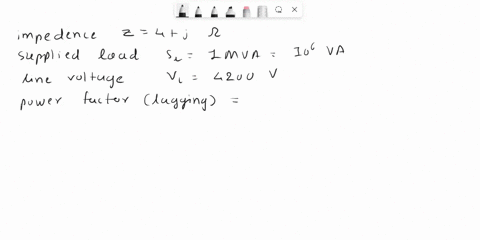 impedence z = 4 + j Ω
supplied load S_L = 1 MVA = 10⁶ VA
line voltage V_L = 4200 V
power factor (lagging) =